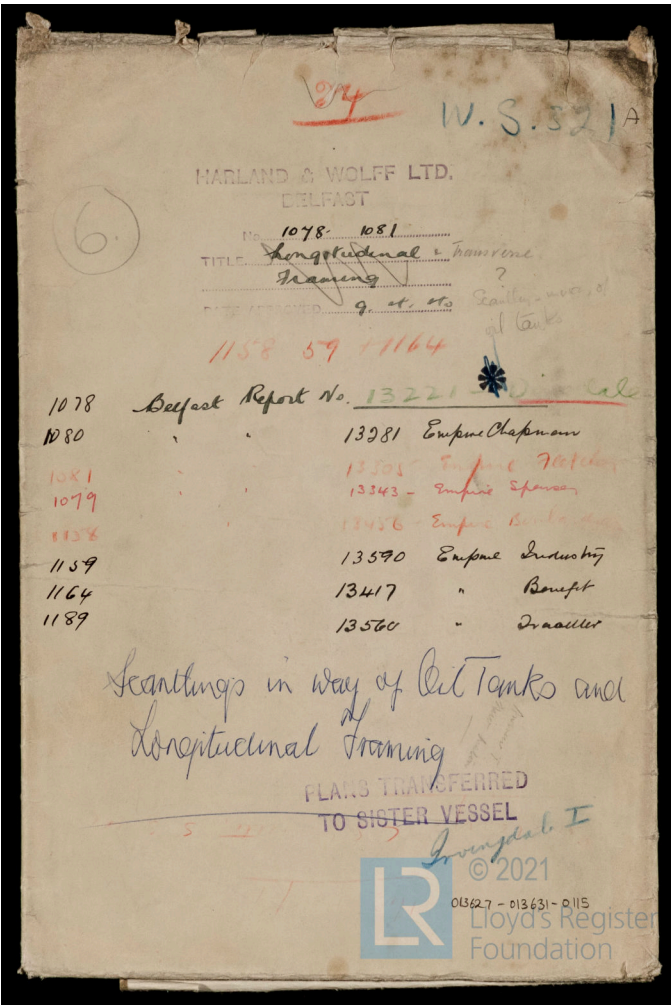 24
W.S.321A
HARLAND & WOLFF LTD.
BELFAST
6.
No. 1078- 1081
TITLE Longitudinal & Transverse
Framing ?
DATE APPROVED 9. et. etc Scantlings in way of
oil tanks
1158 59 + 1164
1078 Belfast Report No. 13221 -
1080 " " 13281 Empire Chapman
1081 " 13305 Empire Fletcher
1079 " " 13343 - Empire Spenser
1158 13456 - Empire
1159 13590 Empire Industry
1164 13417 " Benefit
1189 13560 " Traveller
Scantlings in way of Oil Tanks and
Longitudinal Framing
PLANS TRANSFERRED
TO SISTER VESSEL
Irvingdale I
© 2021
LR
013627-013631-0115
Lloyd's Register
Foundation